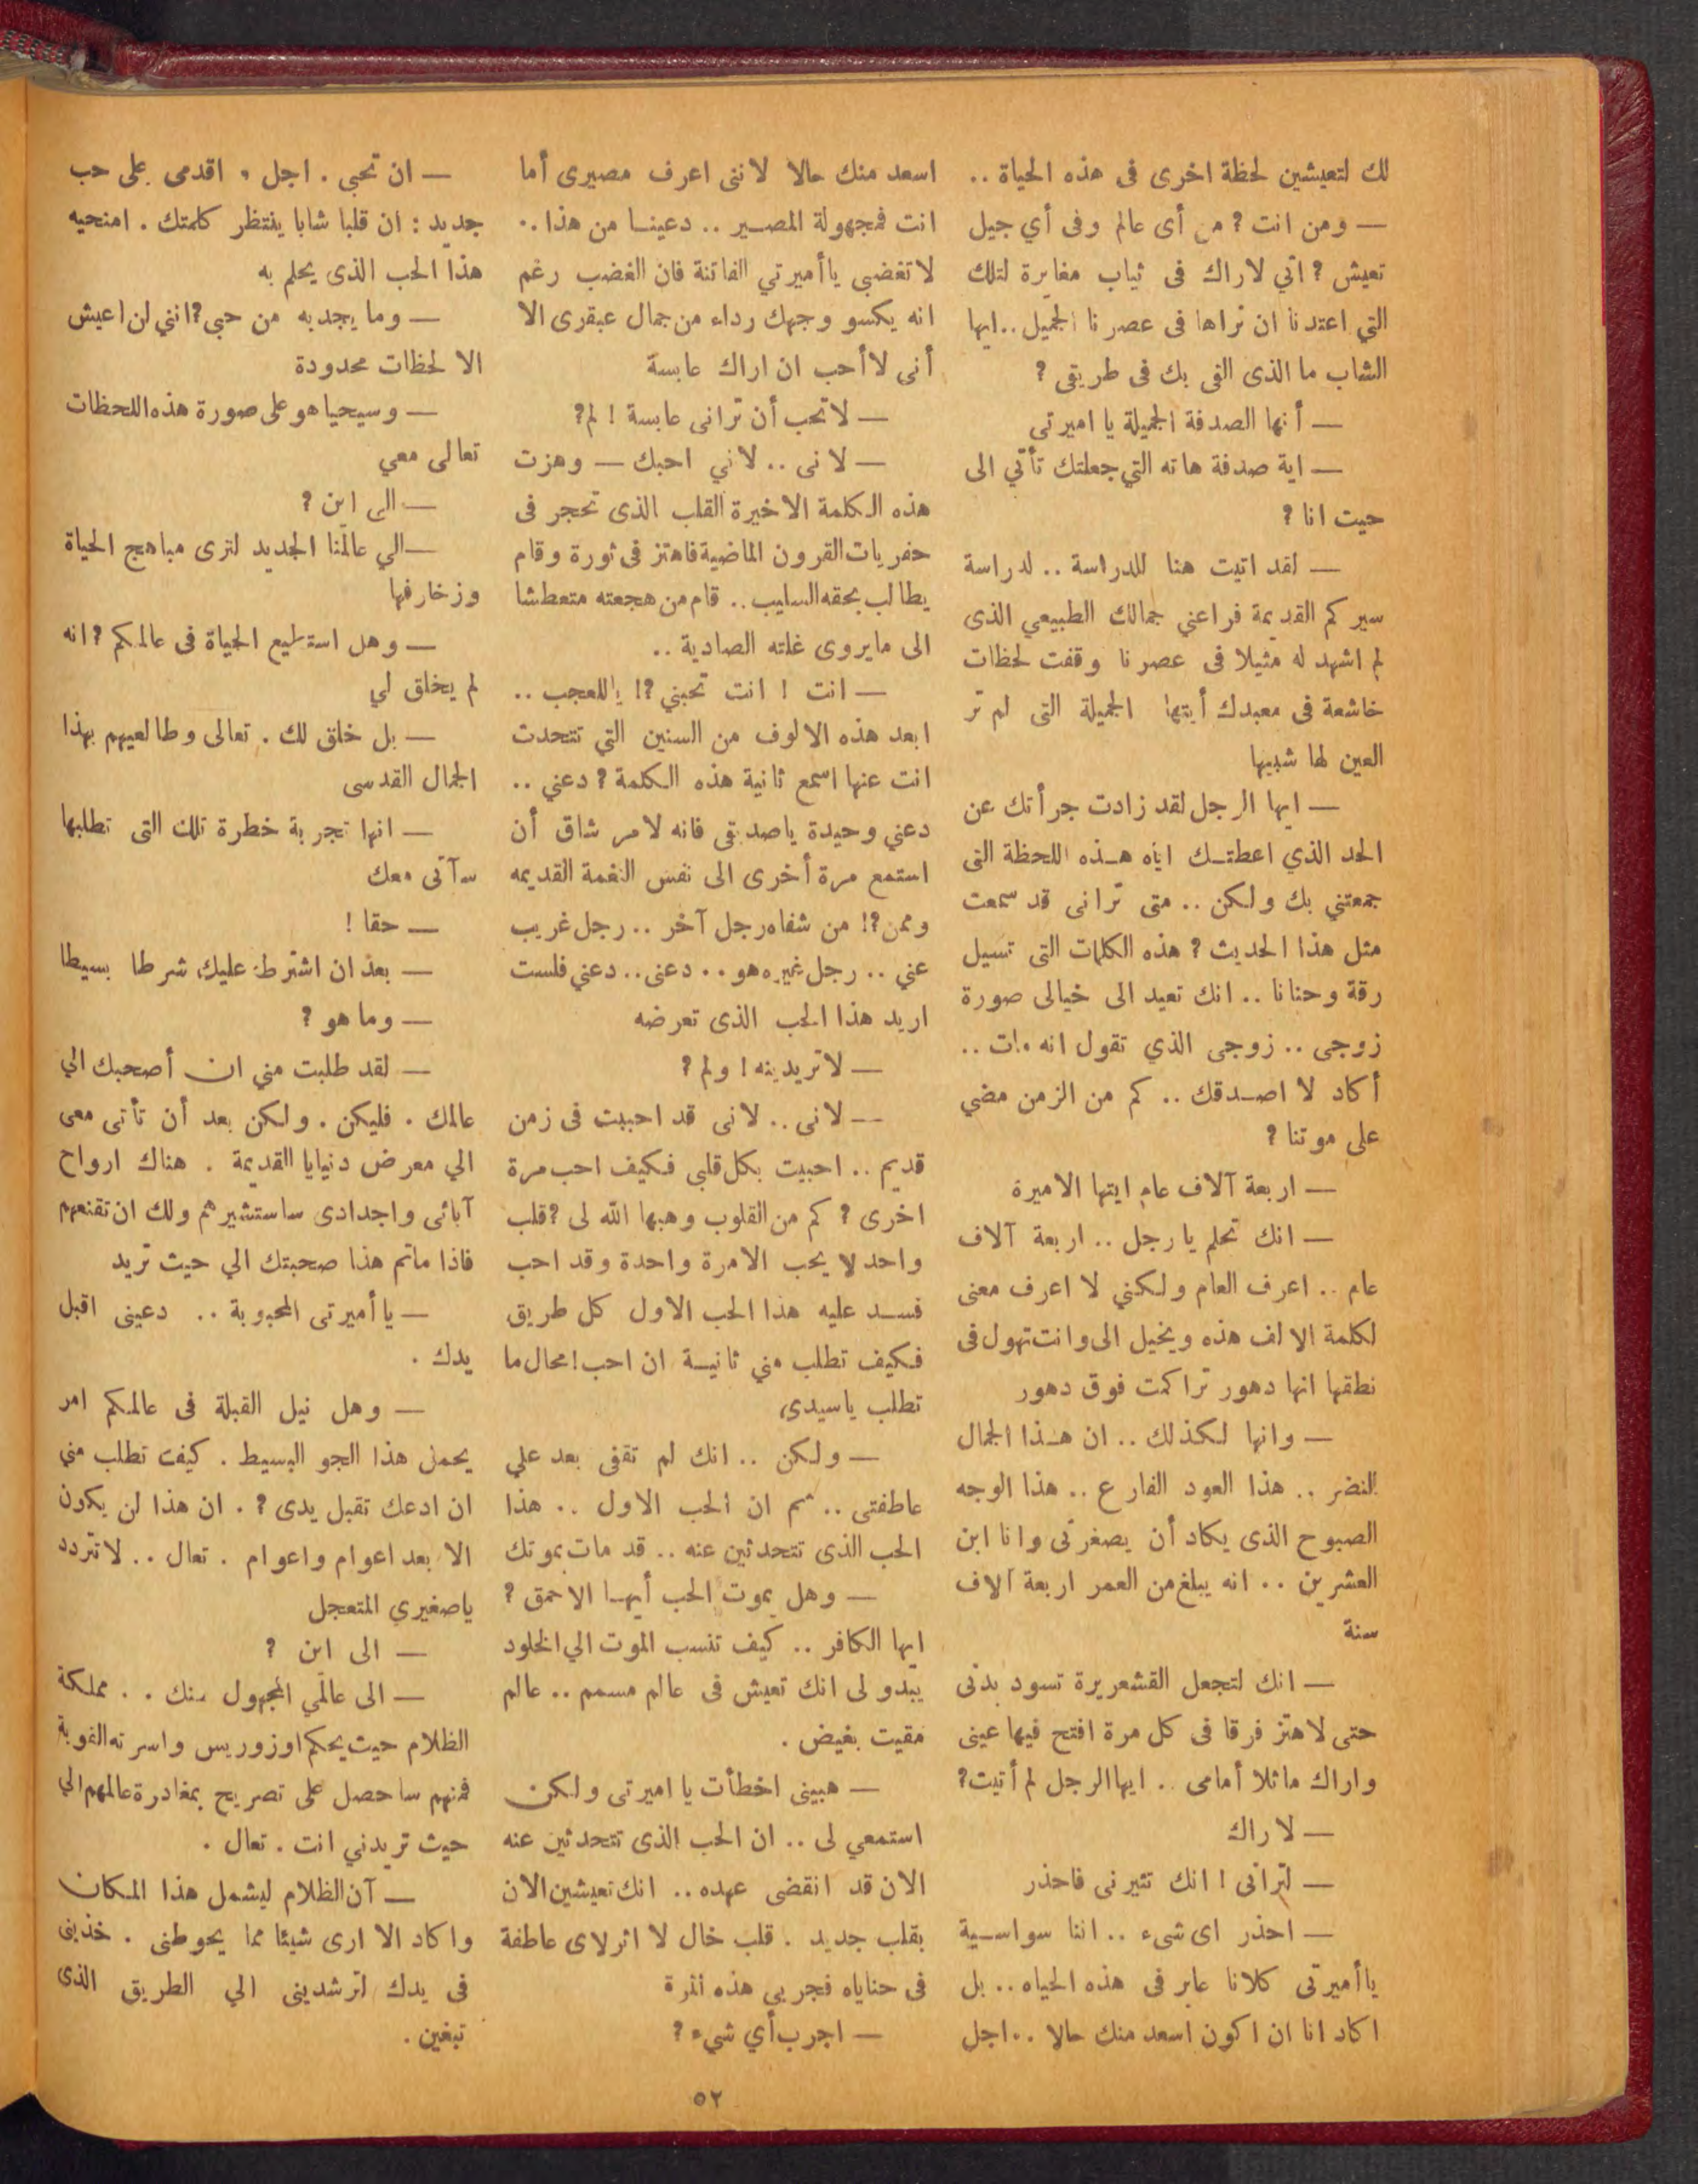 لك لتعيشين لحظة اخرى فى هذه الحياة ..
— ومن انت ? من أى عالم وفى أي جيل
تعيش ? اني لاراك فى ثياب مغايرة لتلك
التي اعتدنا ان نراها فى عصرنا الجميل .. ايها
الشاب ما الذى القى بك فى طريقى ?
— أنها الصدفة الجميلة يا اميرتى
— اية صدفة هاته التي جعلتك تأتي الى
حيت انا ?
— لقد اتيت هنا للدراسة .. لدراسة
سيركم القديمة فراعني جمالك الطبيعي الذى
لم اشهد له مثيلا فى عصرنا وقفت لحظات
خاشعة فى معبدك أيتها الجميلة التى لم تر
العين لها شبيها
— ايها الرجل لقد زادت جرأتك عن
الحد الذي اعطتـك اياه هـذه اللحظة التى
جمعتني بك ولكن .. متى ترانى قد سمعت
مثل هذا الحديث ? هذه الكلمات التى تسيل
رقة وحنانا .. انك تعيد الى خيالى صورة
زوجى .. زوجى الذي تقول انه مات ..
أكاد لا اصـدقك .. كم من الزمن مضي
على موتنا ?
— اربعة آلاف عام ايتها الاميرة
— انك تحلم يا رجل .. اربعة آلاف
عام .. اعرف العام ولكني لا اعرف معنى
لكلمة الالف هذه ويخيل الى وانت تهول فى
نطقها انها دهور تراكمت فوق دهور
— وانها لكذلك .. ان هـذا الجمال
النضر .. هذا العود الفارع .. هذا الوجه
الصبوح الذى يكاد أن يصغرنى وانا ابن
العشرين .. انه يبلغ من العمر اربعة آلاف
سنة
— انك لتجعل القشعريرة تسود بدنى
حتى لاهتز فرقا فى كل مرة افتح فيها عينى
واراك ماثلا أمامى .. ايها الرجل لم أتيت?
— لاراك
— لترانى ! انك تثيرنى فاحذر
— احذر اى شىء .. اننا سواسـية
يا أميرتى كلانا عابر فى هذه الحياه .. بل
اكاد انا ان اكون اسعد منك حالا .. اجل
اسعد منك حالا لاننى اعرف مصيرى أما
انت فمجهولة المصـير .. دعينـا من هذا ..
لا تغضبى ياأميرتي الفاتنة فان الغضب رغم
انه يكسو وجهك رداء من جمال عبقرى الا
أنى لاأحب ان اراك عابسة
— لا تحب أن ترانى عابسة ! لم?
— لانى .. لاني احبك — وهزت
هذه الكلمة الاخيرة القلب الذى تحجر فى
حفريات القرون الماضية فاهتز فى ثورة وقام
يطالب بحقه السليب .. قام من هجعته متعطشا
الى مايروى غلته الصادية ..
— انت ! انت تحبني ?! ياللعجب ..
ابعد هذه الالوف من السنين التي تتحدت
انت عنها اسمع ثانية هذه الكلمة ? دعني ..
دعني وحيدة ياصدقى فانه لامر شاق أن
استمع مرة أخرى الى نفس النغمة القديمه
وممن ?! من شفاه رجل آخر .. رجل غريب
عني .. رجل غيره هو .. دعنى .. دعني فلست
اريد هذا الحب الذى تعرضه
— لاتريدينه ! ولم ?
— لانى .. لانى قد احببت فى زمن
قديم .. احببت بكل قلبى فكيف احب مرة
اخرى ? كم من القلوب وهبها الله لى ? قلب
واحد لا يحب الامرة واحدة وقد احب
فسـد عليه هذا الحب الاول كل طريق
فكيف تطلب مني ثانيـة ان احب ! محال ما
تطلب ياسيدى
— ولكن .. انك لم تقفى بعد علي
عاطفتى .. ثم ان الحب الاول .. هذا
الحب الذى تتحدثين عنه .. قد مات بموتك
— وهل يموت الحب أيهـا الاحمق ?
ايها الكافر .. كيف تنسب الموت الي الخلود
يبدو لى انك تعيش فى عالم مسمم .. عالم
مقيت بغيض .
— هبينى اخطأت يا اميرتى ولكن
استمعي لى .. ان الحب الذى تتحدثين عنه
الان قد انقضى عهده .. انك تعيشين الان
بقلب جديد . قلب خال لا اثر لاى عاطفة
فى حناياه فجربى هذه المرة
— اجرب أي شيء ?
— ان تحبي . اجل . اقدمى على حب
جديد : ان قلبا شابا ينتظر كلمتك . امنحيه
هذا الحب الذى يحلم به
— وما يجد به من حبى ? انني لن اعيش
الا لحظات محدودة
— وسيحيا هو على صورة هذه اللحظات
تعالى معي
— الى اين ?
— الي عالمنا الجديد لترى مباهج الحياة
وزخارفها
— وهل استطيع الحياة فى عالمكم ? انه
لم يخلق لي
— بل خلق لك . تعالى وطالعيهم بهذا
الجمال القدسى
— انها تجربة خطرة تلك التى تطلبها
سآتى معك
— حقا !
— بعد ان اشترط عليك شرطا بسيطا
— وما هو ?
— لقد طلبت مني ان أصحبك الي
عالمك . فليكن . ولكن بعد أن تأتى معى
الي معرض دنيايا القديمة . هناك ارواح
آبائى واجدادى ساستشيرهم ولك ان تقنعهم
فاذا ماتم هذا صحبتك الي حيث تريد
— يا أميرتى المحبوبة .. دعينى اقبل
يدك .
— وهل نيل القبلة فى عالمكم امر
يحمل هذا الجو البسيط . كيف تطلب مني
ان ادعك تقبل يدى ? . ان هذا لن يكون
الا بعد اعوام واعوام . تعال .. لا تتردد
ياصغيري المتعجل
— الى اين ?
— الى عالمي المجهول منك .. مملكة
الظلام حيث يحكم اوزوريس واسرته القوية
فمنهم ساحصل على تصريح بمغادرة عالمهم الي
حيث تريدني انت . تعال .
— آن الظلام ليشمل هذا المكان
واكاد الا ارى شيئا مما يحوطنى . خذينى
فى يدك لترشدينى الي الطريق الذى
تبغين .
٥٢